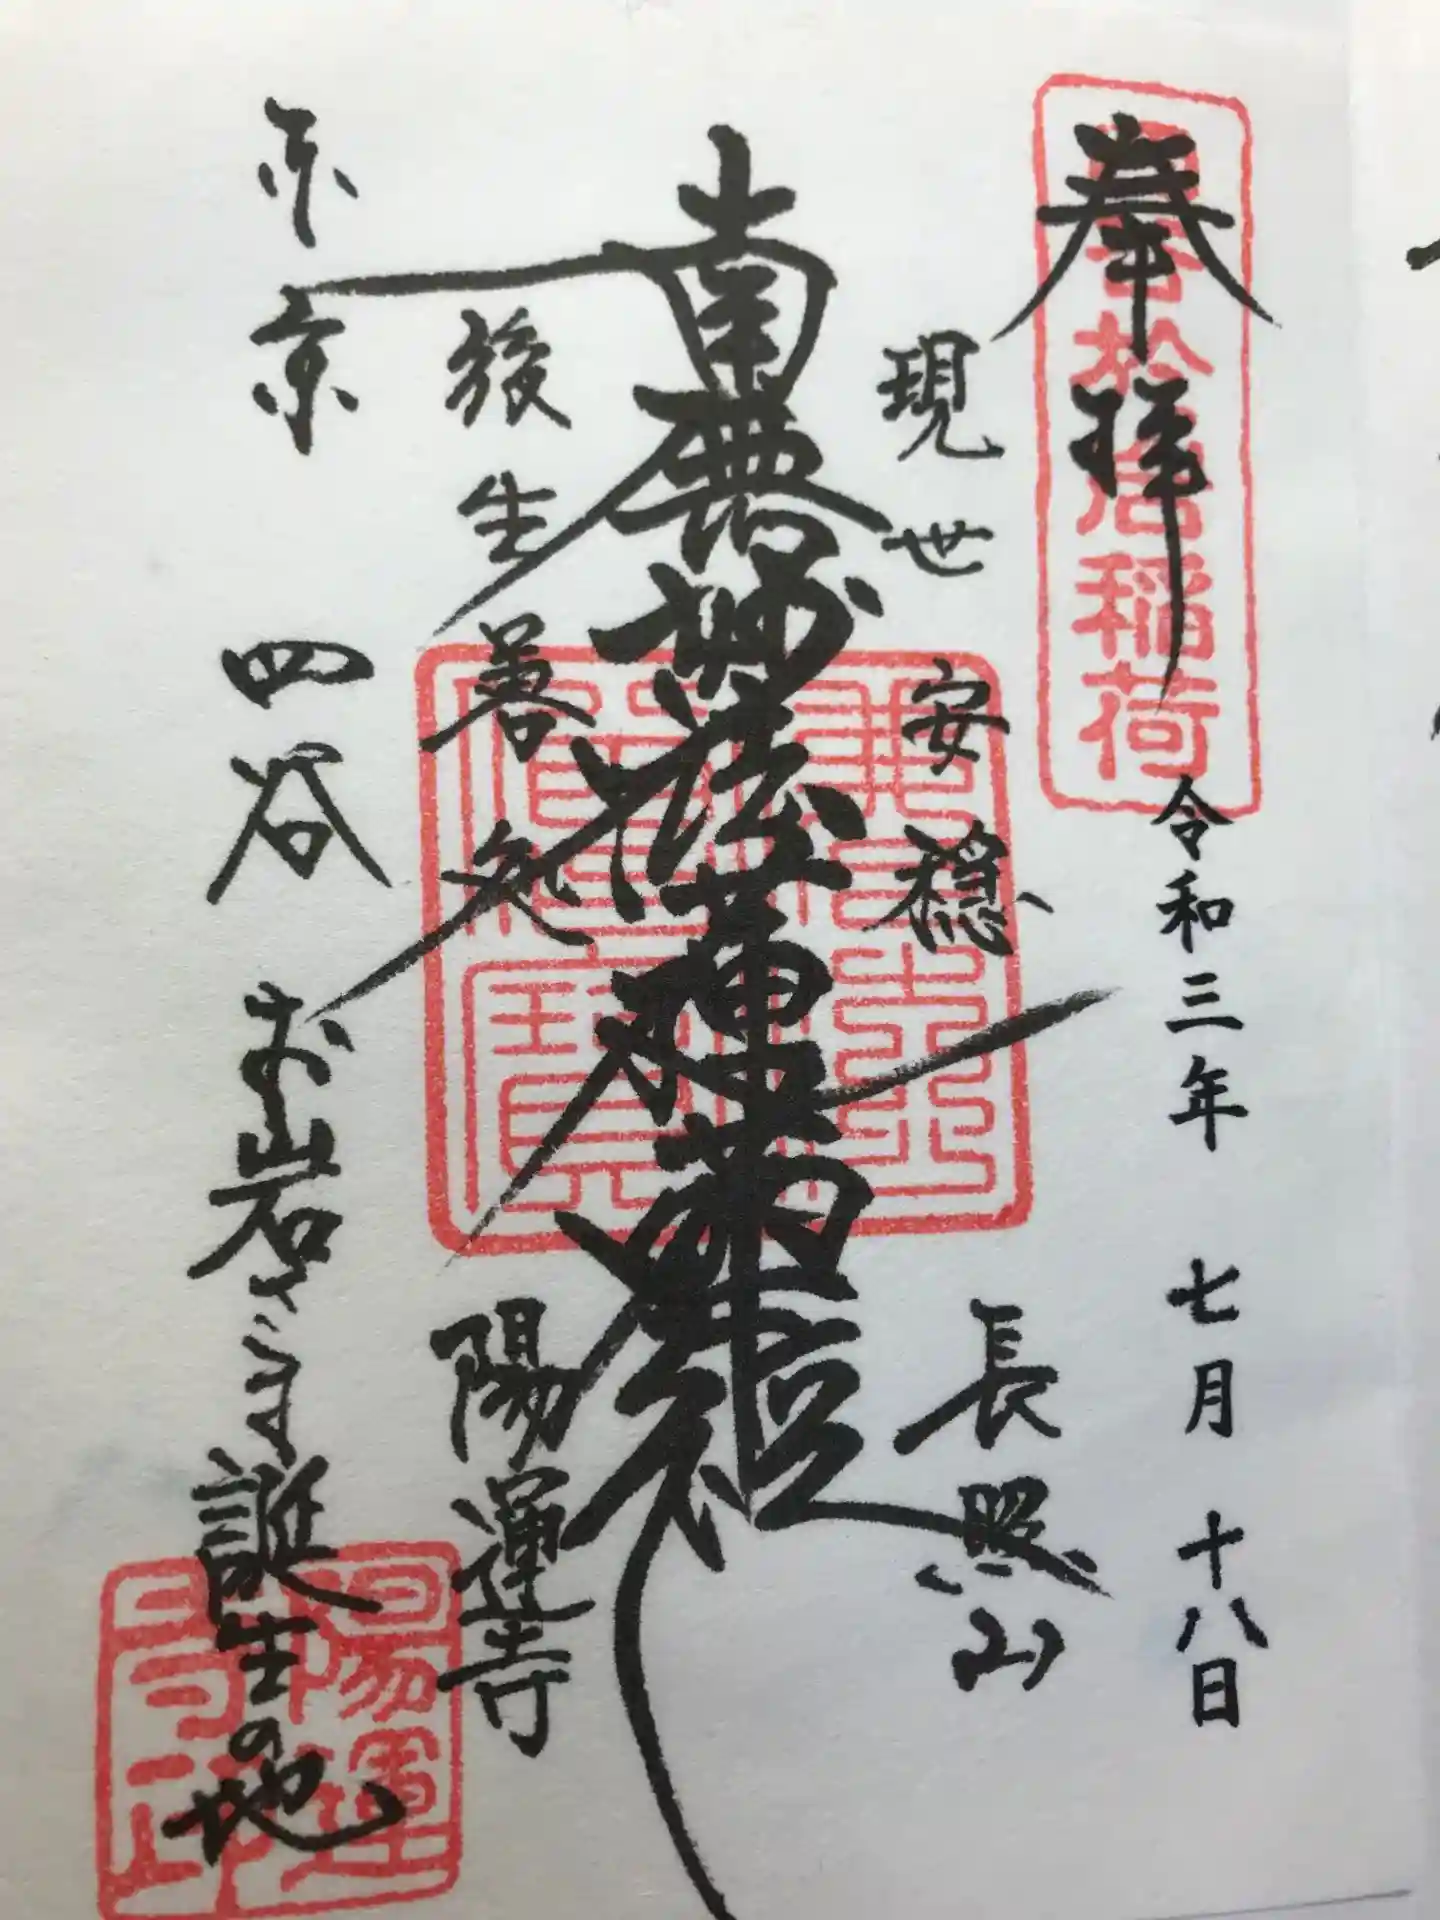 奉拝
於岩稲荷
令和三年 七月 十八日
現世安穏 長照山
南無妙法蓮華経
後生善処 陽運寺
東京 四谷 お岩さま誕生の地
陽運寺印